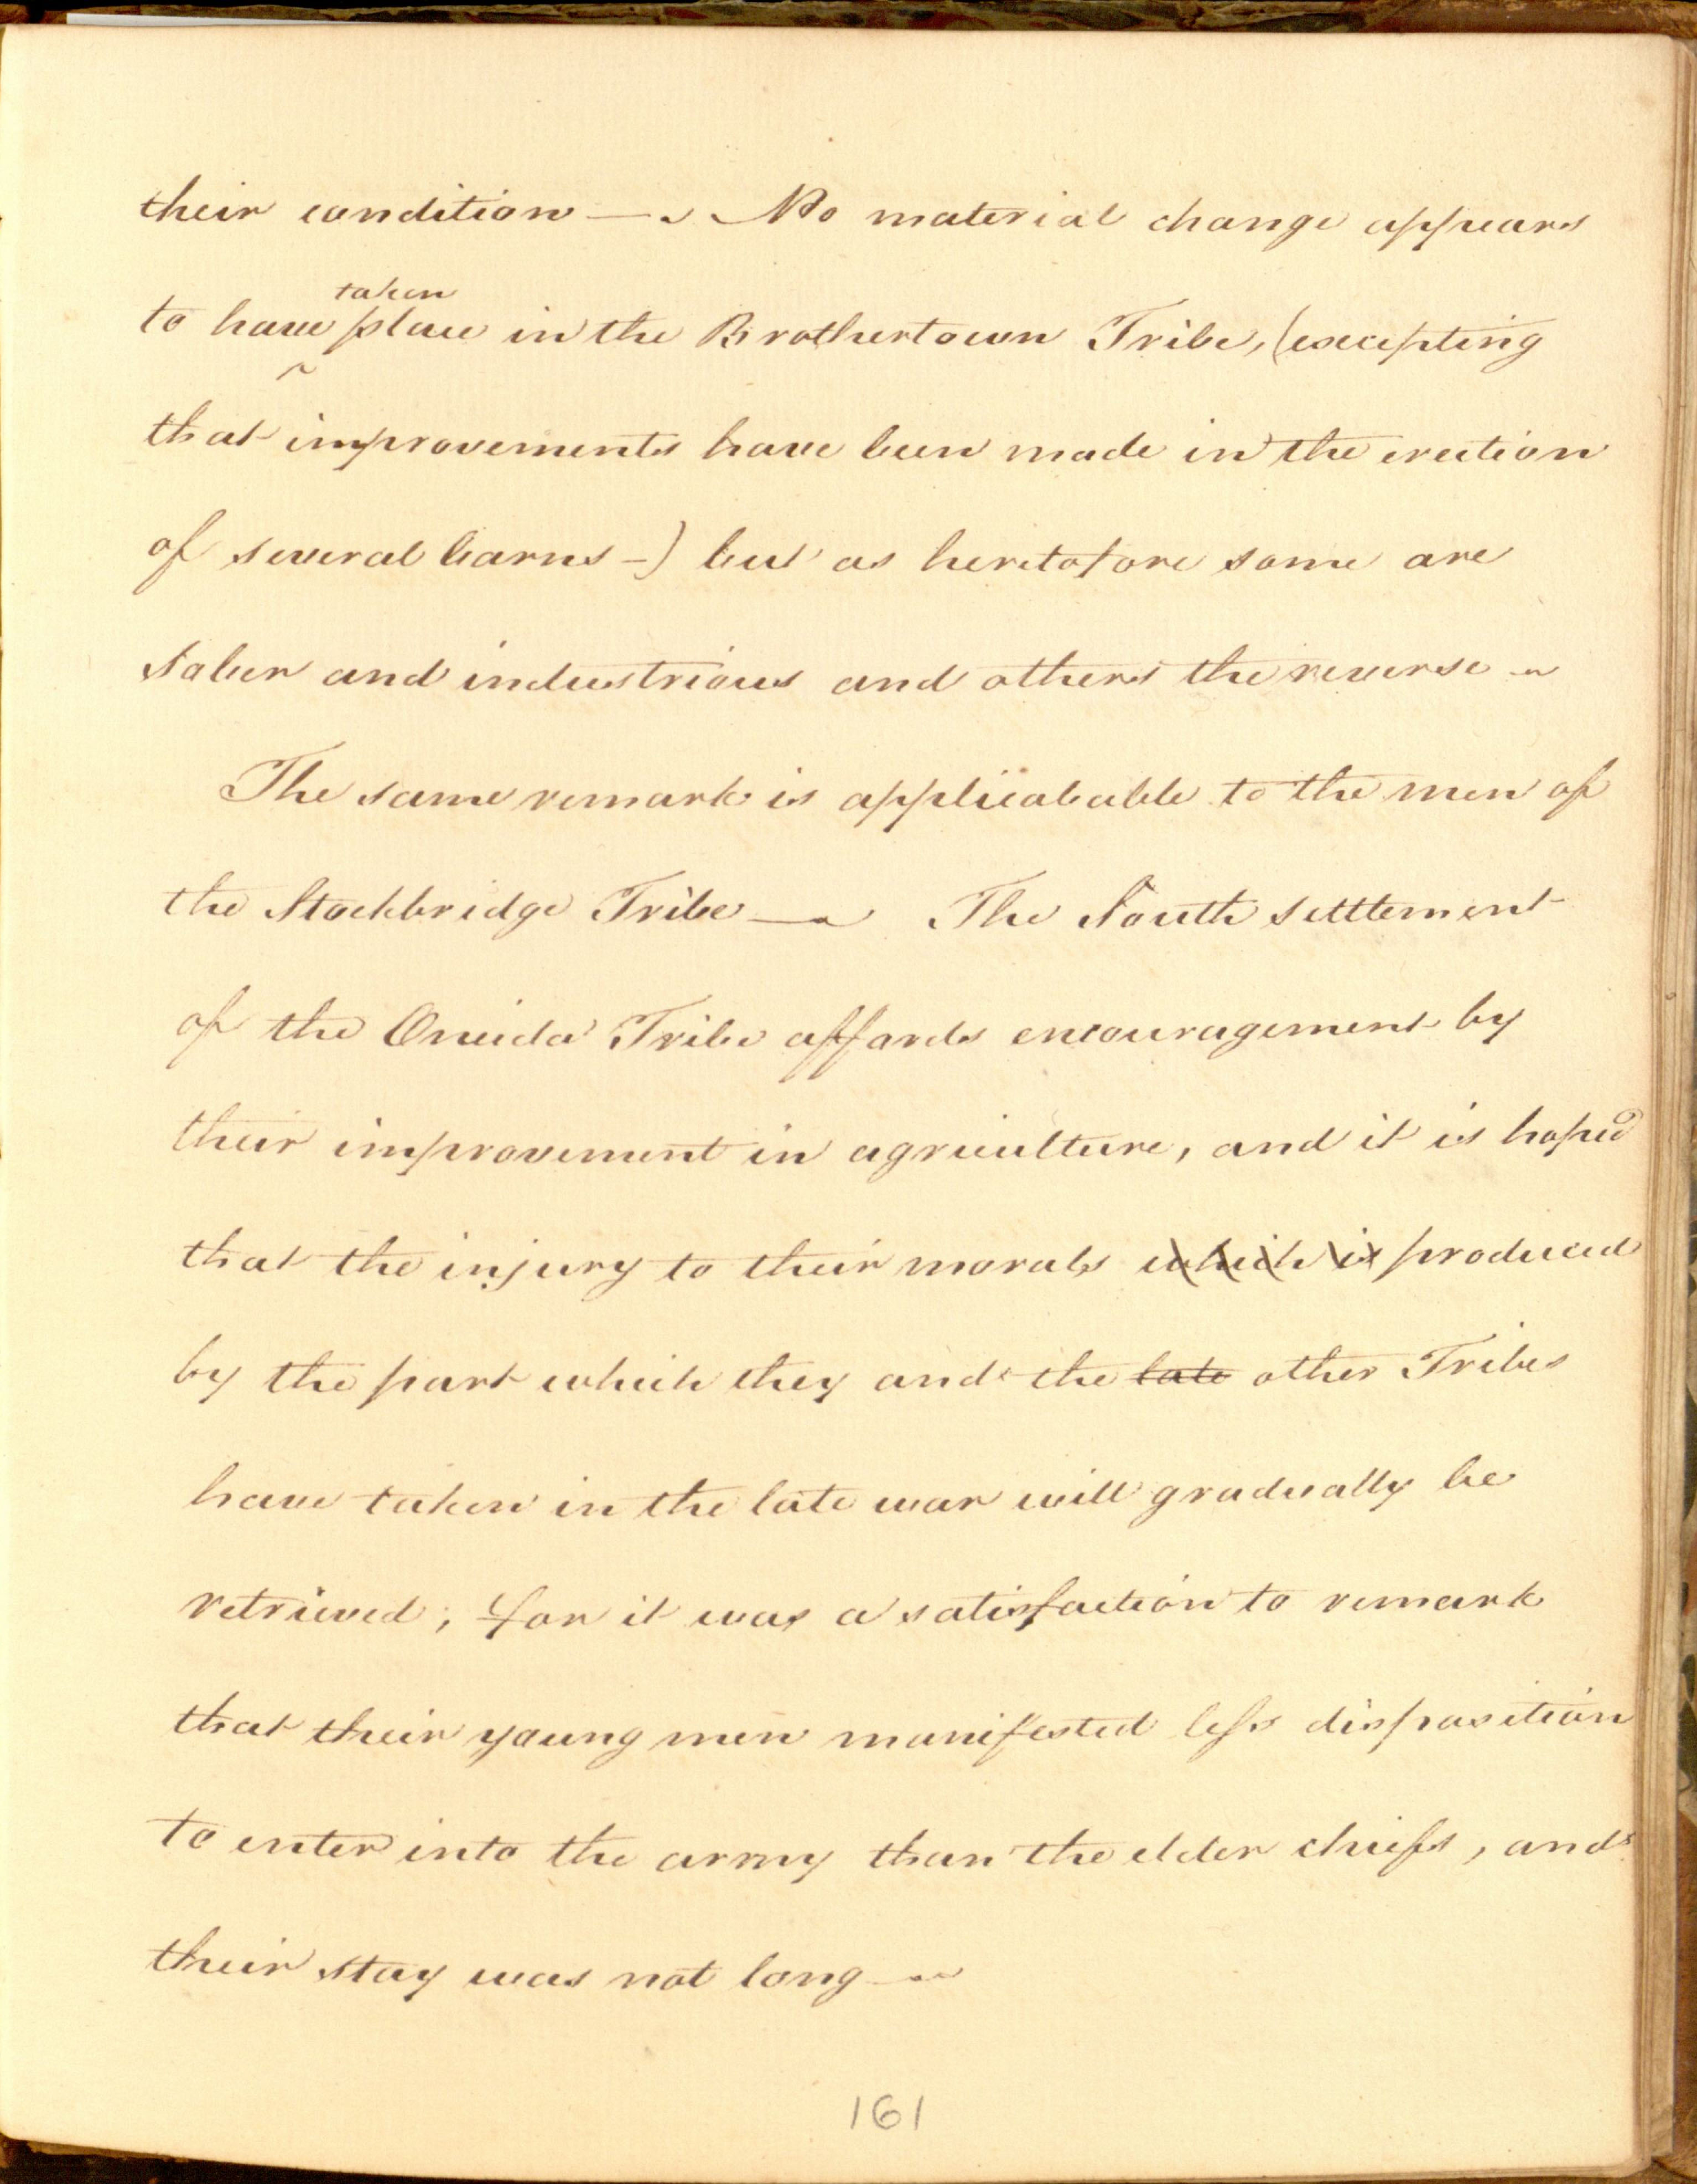 their condition — No material change appears
taken
to have ^ place in the Brothertown Tribe, (excepting
that improvements have been made in the erection
of several barns -) but as heretofore some are
sober and industrious and others the reverse -
The same remark is applicabable to the men of
the Stockbridge Tribe — The South settlement
of the Oneida Tribe affords encouragement by
their improvement in agriculture, and it is hoped
that the injury to their morals which is produced
by the part which they and the late other Tribes
have taken in the late war will gradually be
retrieved; for it was a satisfaction to remark
that their young men manifested less disposition
to enter into the army than the elder chiefs, and
their stay was not long —
161